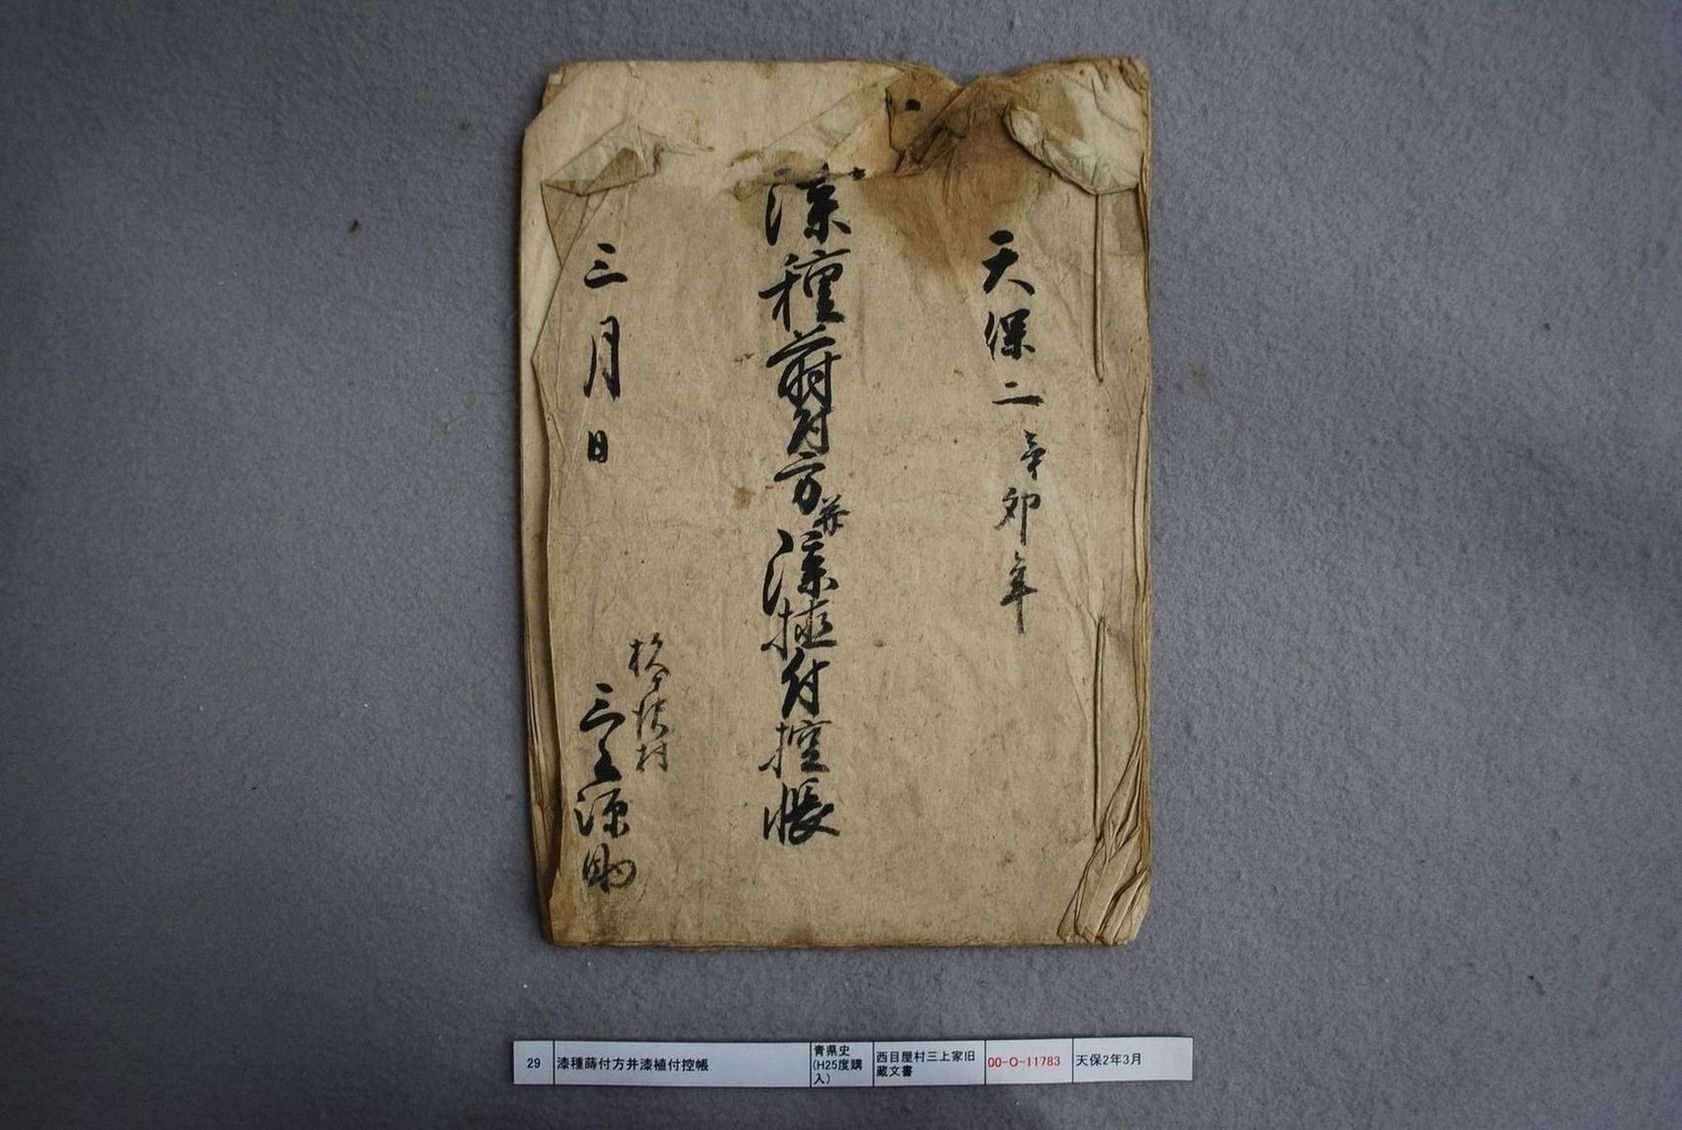 天保二辛卯年
漆種蒔付方并漆植付控帳
三月日
杉ヶ沢村
三上源助
29
漆種蒔付方并漆植付控帳
青県史
(H25度購
入)
西目屋村三上家旧
蔵文書
00-O-11783
天保2年3月